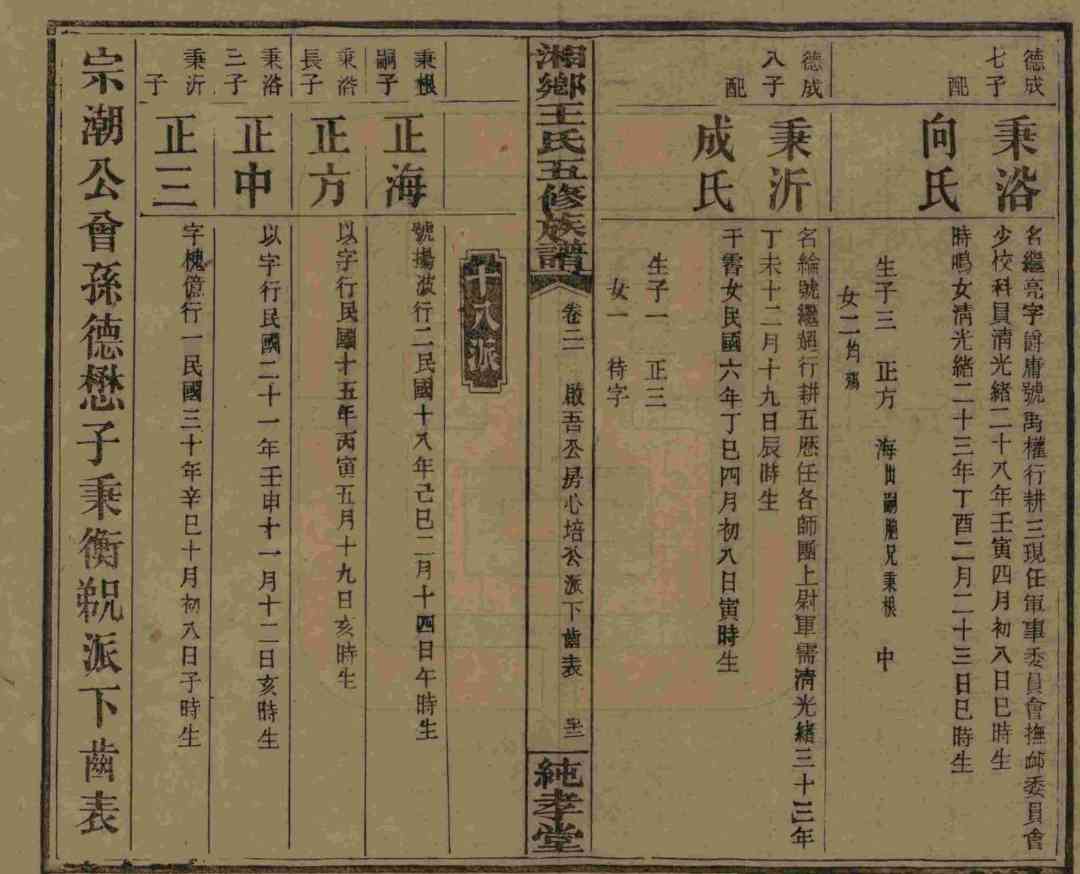 德成七子
秉浴
名繼亮字爵庸號禹權行耕三現任軍事委員會撫卹委員會
少校科員清光緒二十八年壬寅四月初八日巳時生
配
向氏
時鳴女清光緒二十三年丁酉二月二十三日巳時生
生子三 正方 海出嗣胞兄秉根 中
女二均殤
德成八子
秉沂
名綸號繼超行耕五歷任各師團上尉軍需清光緒三十三年
丁未十二月十九日辰時生
配
成氏
干霄女民國六年丁巳四月初八日寅時生
生子一 正三
女一 待字
湘鄉王氏五修族譜
卷三二 啟吾公房心培公派下齒表
純孝堂
十八派
秉根嗣子
正海
號揚波行二民國十八年己巳二月十四日午時生
秉浴長子
正方
以字行民國十五年丙寅五月十九日亥時生
秉浴三子
正中
以字行民國二十一年壬申十一月十二日亥時生
秉沂子
正三
字槐億行一民國三十年辛巳十月初八日子時生
宗潮公曾孫德懋子秉衡覕派下齒表